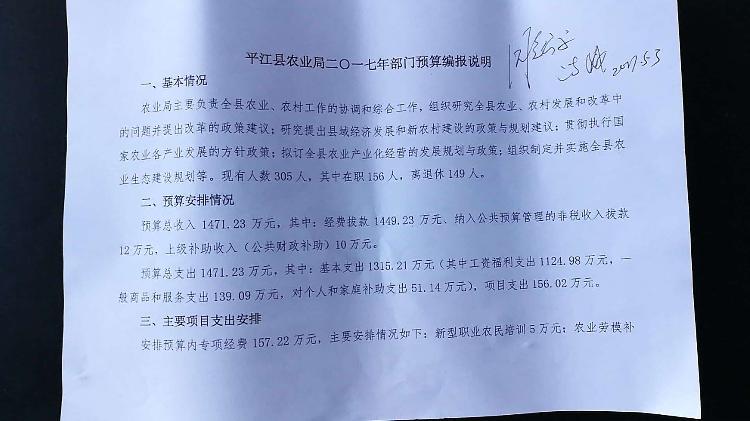 平江县农业局二〇一七年部门预算编报说明
2017.5.3
一、基本情况
农业局主要负责全县农业、农村工作的协调和综合工作，组织研究全县农业、农村发展和改革中
的问题并提出改革的政策建议；研究提出县域经济发展和新农村建设的政策与规划建议；贯彻执行国
家农业各产业发展的方针政策；拟订全县农业产业化经营的发展规划与政策；组织制定并实施全县农
业生态建设规划等。现有人数305人，其中在职156人，离退休149人。
二、预算安排情况
预算总收入1471.23万元，其中：经费拨款1449.23万元、纳入公共预算管理的非税收入拨款
12万元，上级补助收入（公共财政补助）10万元。
预算总支出1471.23万元，其中：基本支出1315.21万元（其中工资福利支出1124.98万元，一
般商品和服务支出139.09万元，对个人和家庭补助支出51.14万元），项目支出156.02万元。
三、主要项目支出安排
安排预算内专项经费157.22万元，主要安排情况如下：新型职业农民培训5万元；农业劳模补